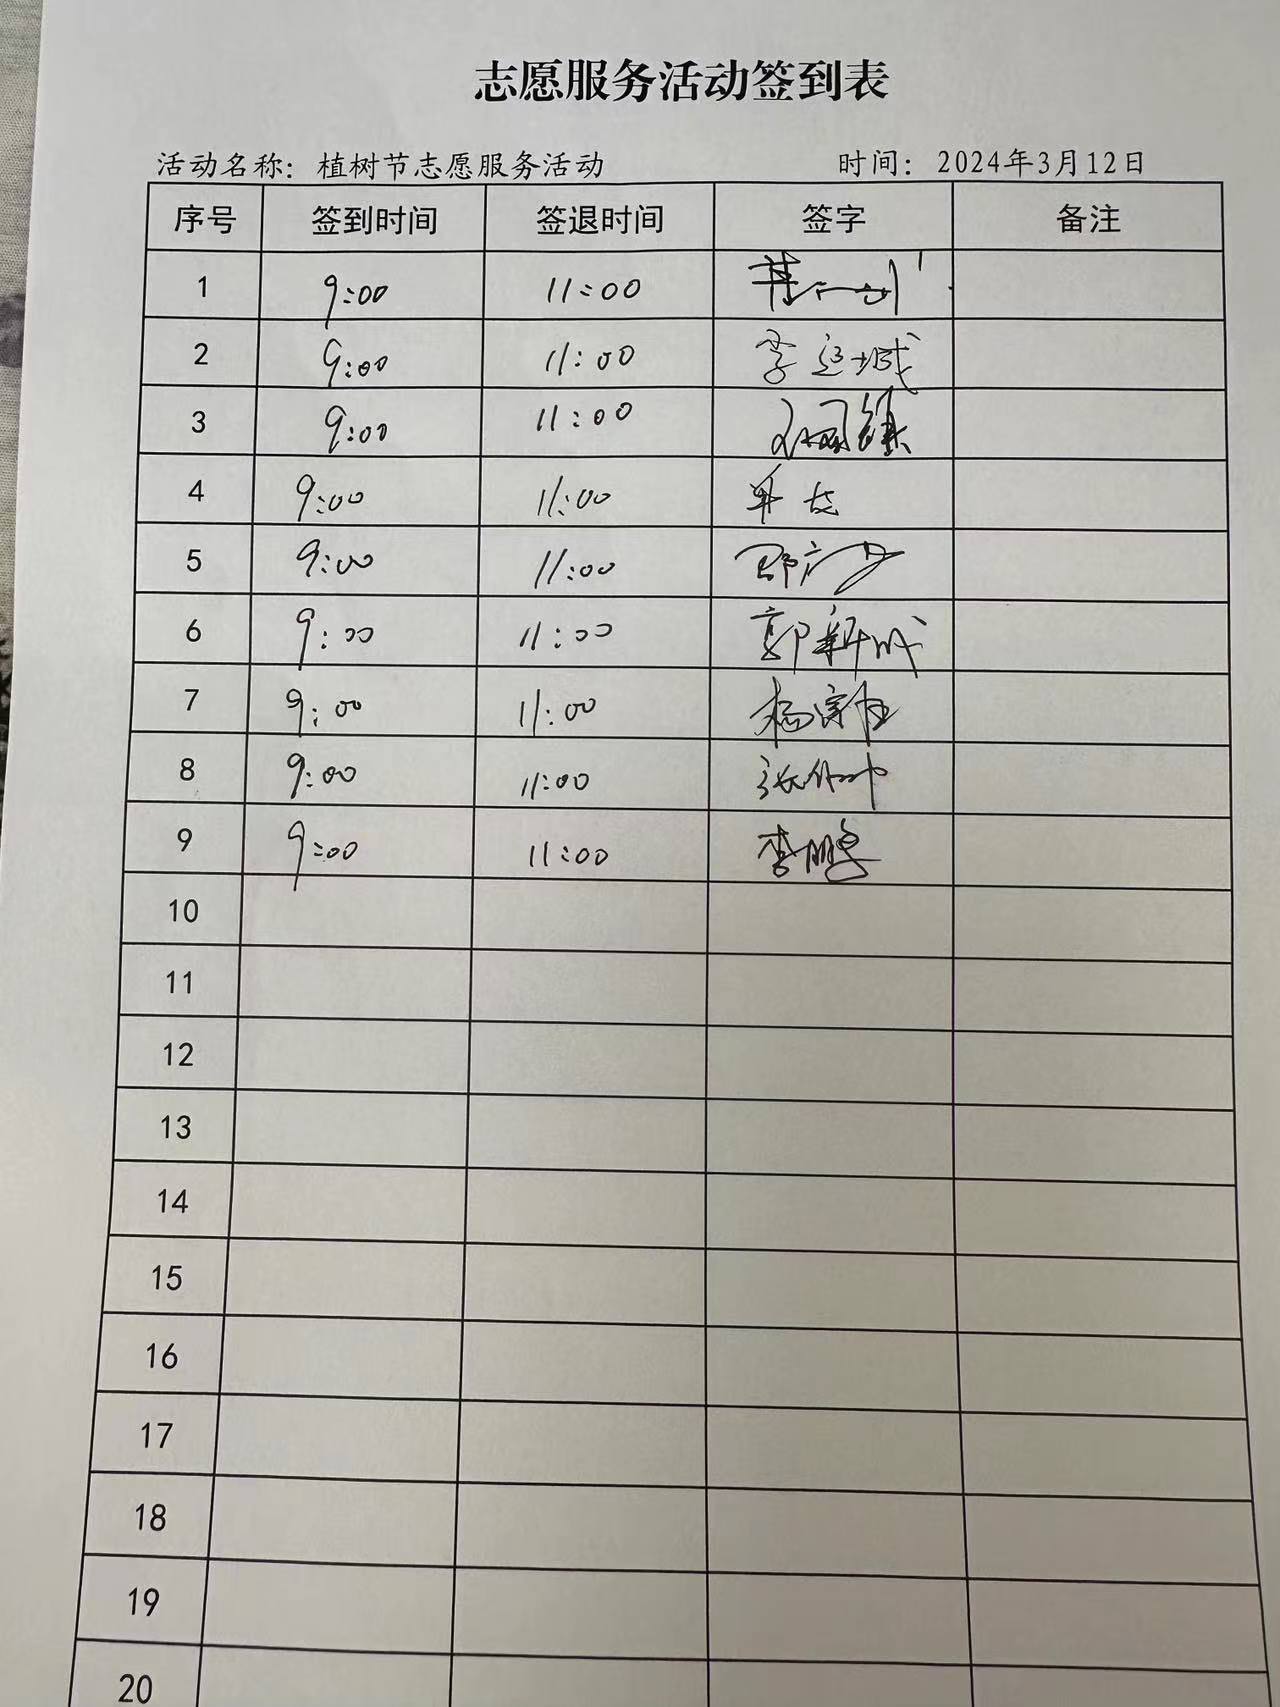 志愿服务活动签到表
活动名称：植树节志愿服务活动 时间：2024年3月12日
序号 签到时间 签退时间 签字 备注
1 9:00 11:00
2 9:00 11:00 李运城
3 9:00 11:00
4 9:00 11:00
5 9:00 11:00
6 9:00 11:00 郭新成
7 9:00 11:00
8 9:00 11:00
9 9:00 11:00 李鹏
10
11
12
13
14
15
16
17
18
19
20